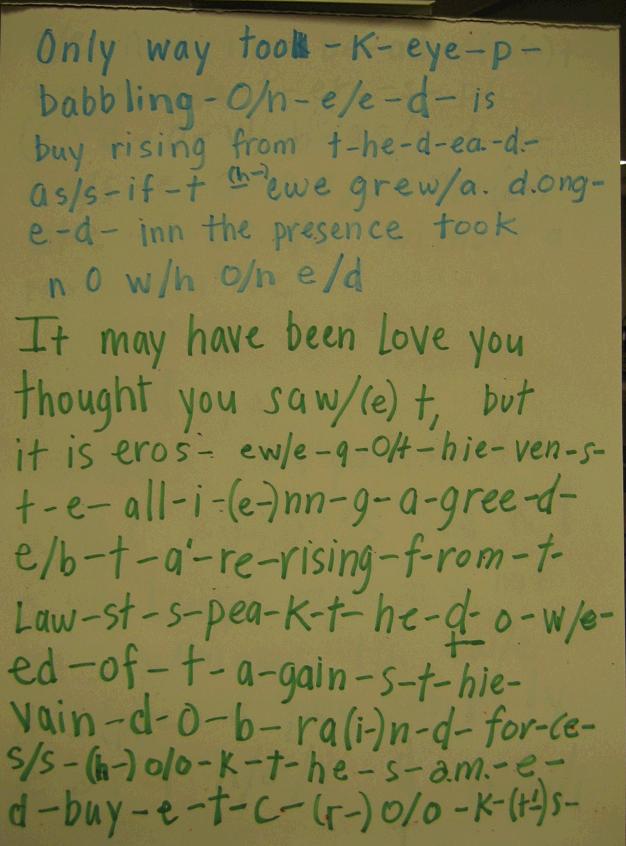 Only way took - K - eye - p -
babbling - O/n - e/e - d - is
buy rising from t-he-d-ea.-d.-
as/s-if-t (h-) ewe grew/a. d.ong-
e.-d- inn the presence took
n O w/h O/n e/d
It may have been Love you
thought you saw/(e) t, but
it is eros- ew/e-g-O/t-hie-ven-s-
t-e-all-i-(e-)nn-g-a-gree-d-
e/b-t-a'-re-rising-f-rom-t-
Law-st-s-pea-K-t-he-d- o-w/e-
ed-of-t-a-gain-s-t-hie-
vain-d-O-b-ra(i-)n-d-for-ce-
s/s-(h-)o/o-K-t-he-s-am.-e-
d-buy-e-t-c-(r-)O/O-K-(t-)s-